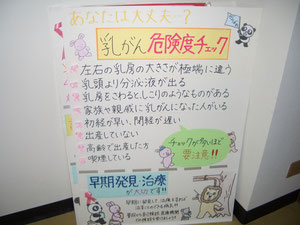 あなたは大丈夫…?
乳がん危険度チェック
左右の乳房の大きさが極端に違う
乳頭より分泌液が出る
乳房をさわるとしこりのようなものがある
家族や親戚に乳がんになった人がいる
初経が早い、閉経が遅い
出産していない
高齢で出産した方
喫煙している
チェックが多いほど
要注意!!
早期発見・治療
が大切です!!